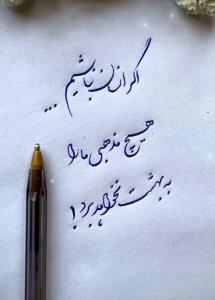 اگر انسان نباشیم ...
هیچ مذهبی ما را
به بهشت نخواهد برد !